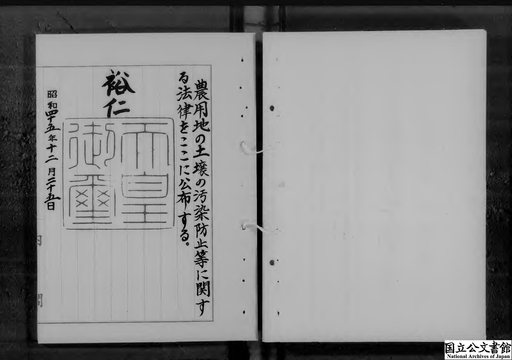 農用地の土壌の汚染防止等に関す
る法律をここに公布する。
裕仁
天皇
御璽
昭和四十五年十二月二十五日
国立公文書館
National Archives of Japan